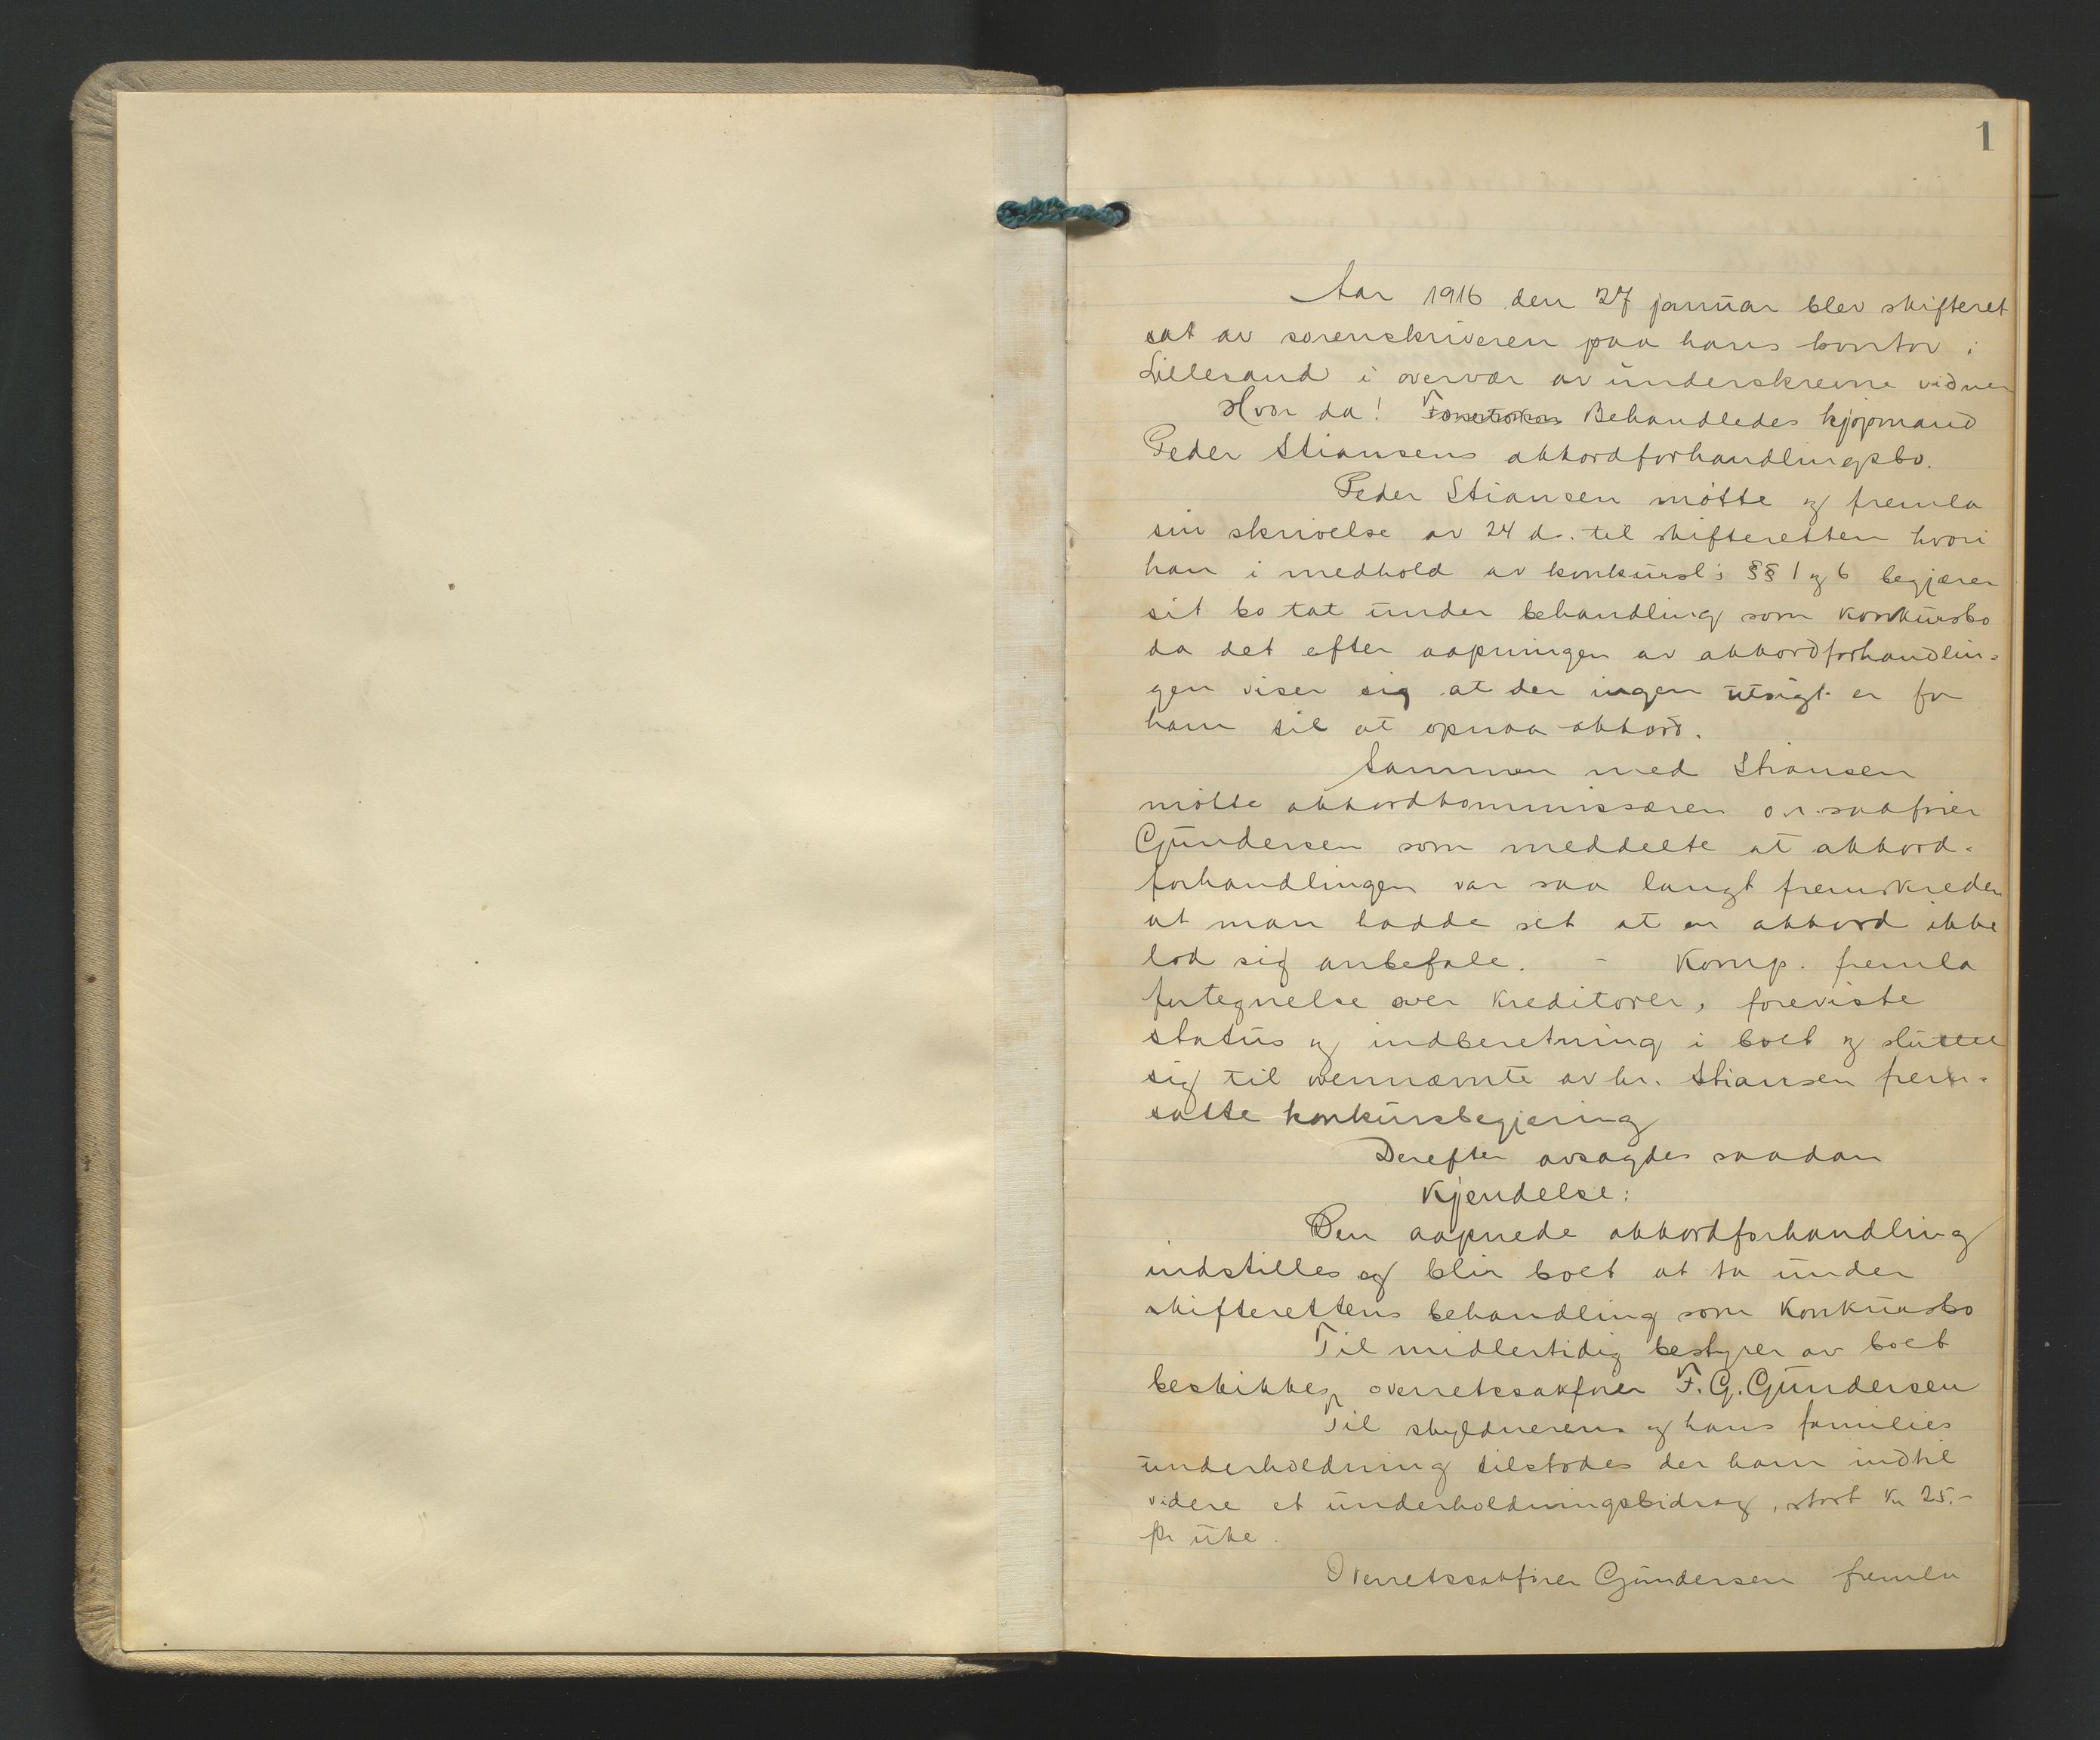 1
Aar 1916 den 27 januar blev skifteret
sat av sorenskriveren paa hans kontor i
Lillesand i overvær av underskrevne vidner
Hvor da! Behandledes kjøpmand
Peder Stiansens akkordforhandlingsbo.
Peder Stiansen møtte og fremla
sin skrivelse av 24 ds. til skifteretten hvori
han i medhold av konkursl's §§ 1 og 6 begjærer
sit bo tat under behandling som konkursbo
da det efter aapningen av akkordforhandlin-
gen viser sig at der ingen utsigt er for
ham til at opnaa akkord.
Sammen med Stiansen
møtte akkordkommissæren o.r.sakfører
Gundersen som meddelte at akkord-
forhandlingen var saa langt fremskreden
at man hadde set at en akkord ikke
lod sig anbefale. - Komp. fremla
fortegnelse over kreditorer, foreviste
status og indberetning i boet og sluttet
sig til ovennævnte av hr. Stiansen frem-
satte konkursbegjæring
Derefter avsagdes saadan
Kjendelse:
Den aapnede akkordforhandling
indstilles og blir boet at ta under
skifterettens behandling som konkursbo
Til midlertidig bestyrer av boet
beskikkes overretssakfører F. G. Gundersen
Til skyldnerens og hans families
underholdning tilstodes der ham indtil
videre et underholdningsbidrag, stort Kr 25.-
pr uke.
Overretssakfører Gundersen fremla